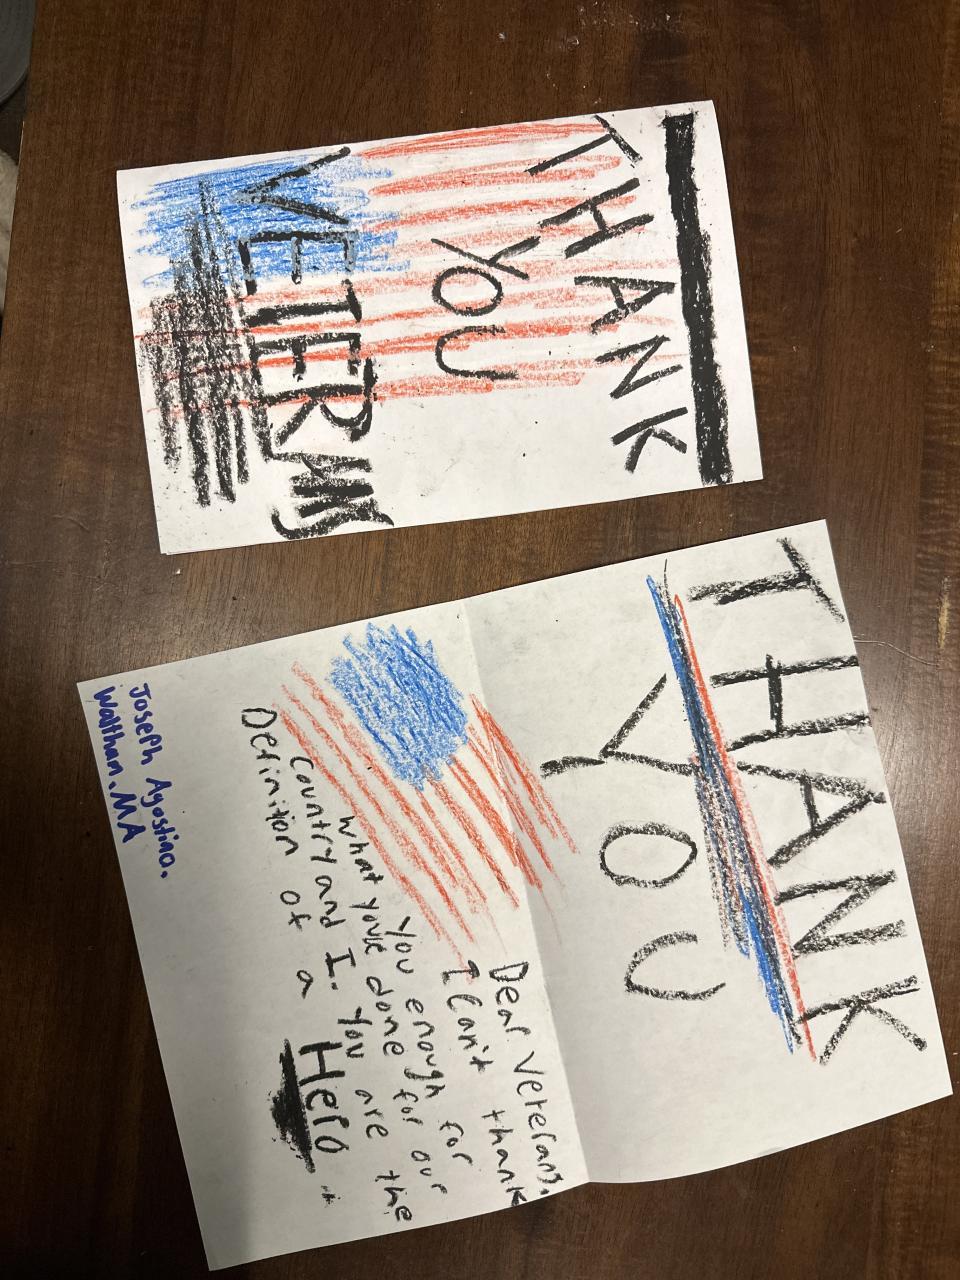 THANK
YOU
VETERANS
THANK
YOU
Dear Veterans,
I Can't thank
You enough for
what you've done for our
Country and I. You are the
Definition of a Hero
Joseph Agostino.
Waltham. MA